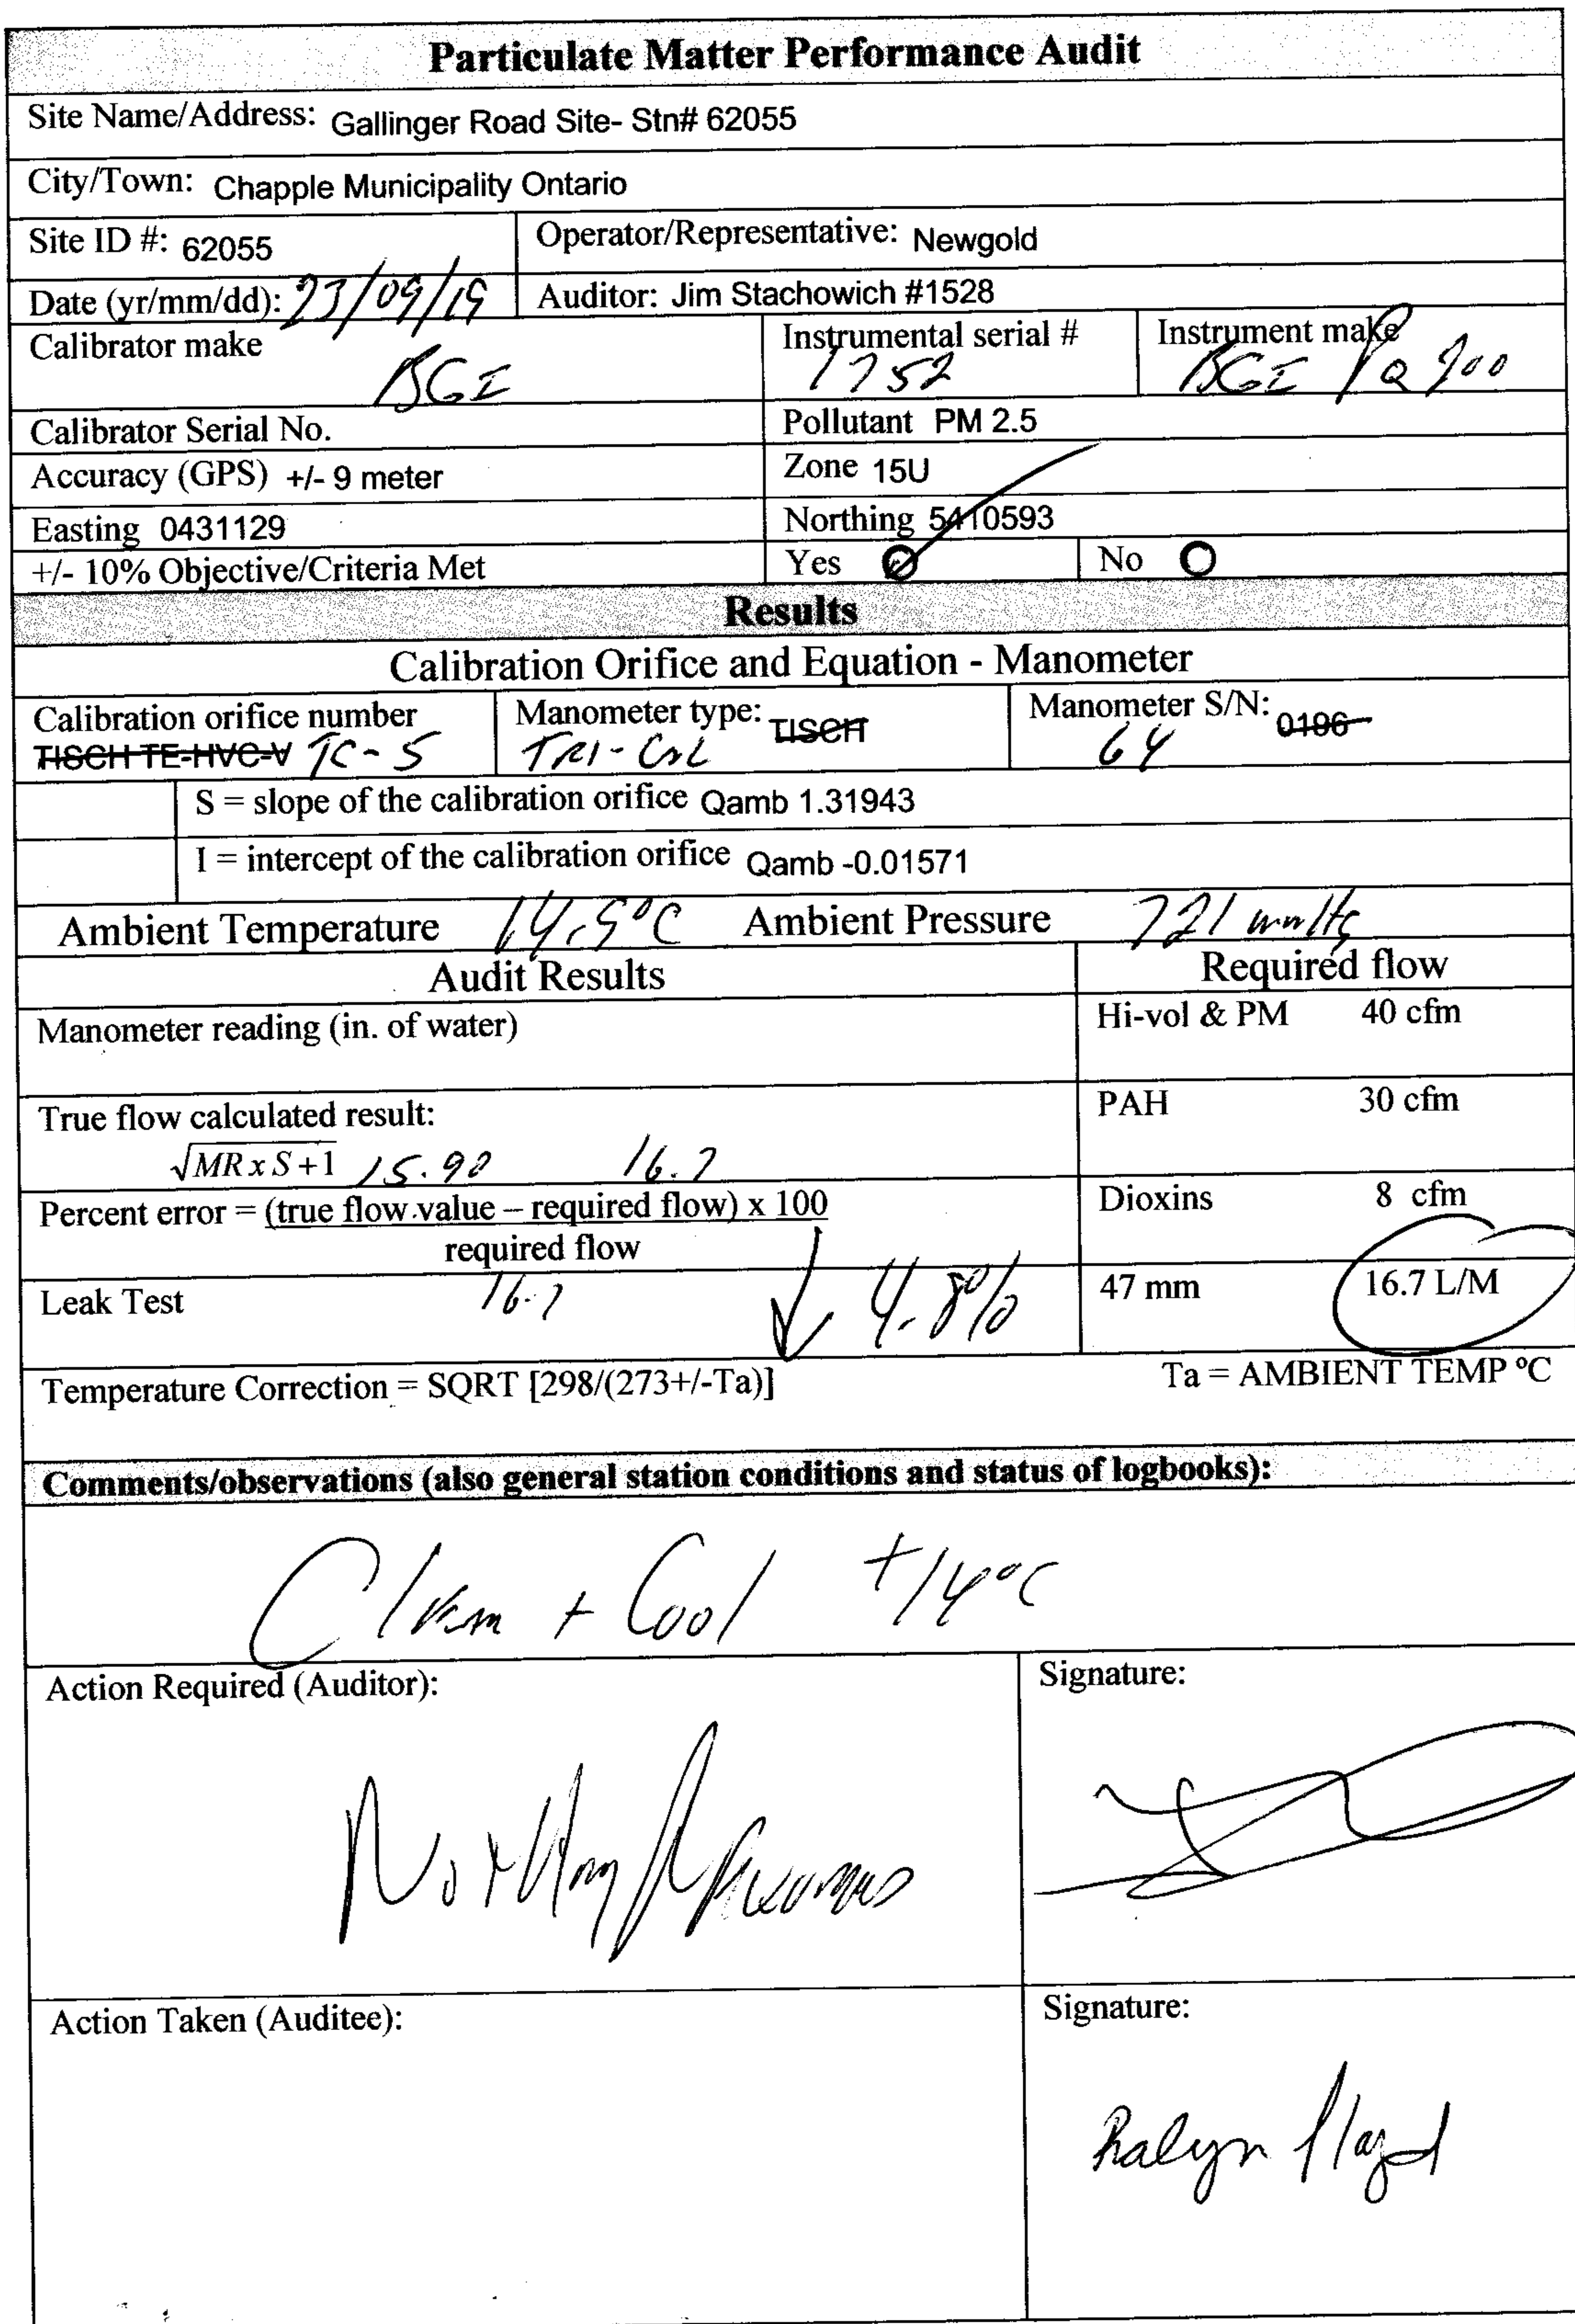 Particulate Matter Performance Audit
Site Name/Address: Gallinger Road Site- Stn# 62055
City/Town: Chapple Municipality Ontario
Site ID #: 62055 Operator/Representative: Newgold
Date (yr/mm/dd): 23/09/19 Auditor: Jim Stachowich #1528
Calibrator make BGI Instrumental serial # 1752 Instrument make BGI PQ 200
Calibrator Serial No. Pollutant PM 2.5
Accuracy (GPS) +/- 9 meter Zone 15U
Easting 0431129 Northing 5410593
+/- 10% Objective/Criteria Met Yes No
Results
Calibration Orifice and Equation - Manometer
Calibration orifice number Manometer type: TISCH Manometer S/N: 0196
TISCH TE-HVC-V TC-5 TRI-CAL 64
S = slope of the calibration orifice Qamb 1.31943
I = intercept of the calibration orifice Qamb -0.01571
Ambient Temperature 14.5°C Ambient Pressure 721 mmHg
Audit Results Required flow
Manometer reading (in. of water) Hi-vol & PM 40 cfm
True flow calculated result: PAH 30 cfm
√MR x S +1 15.90 16.7
Percent error = (true flow value – required flow) x 100 Dioxins 8 cfm
required flow
Leak Test 16.7 4.8% 47 mm 16.7 L/M
Temperature Correction = SQRT [298/(273+/-Ta)] Ta = AMBIENT TEMP ºC
Comments/observations (also general station conditions and status of logbooks):
+ Cool +14°C
Action Required (Auditor): Signature:
Action Taken (Auditee): Signature:
Ralyn